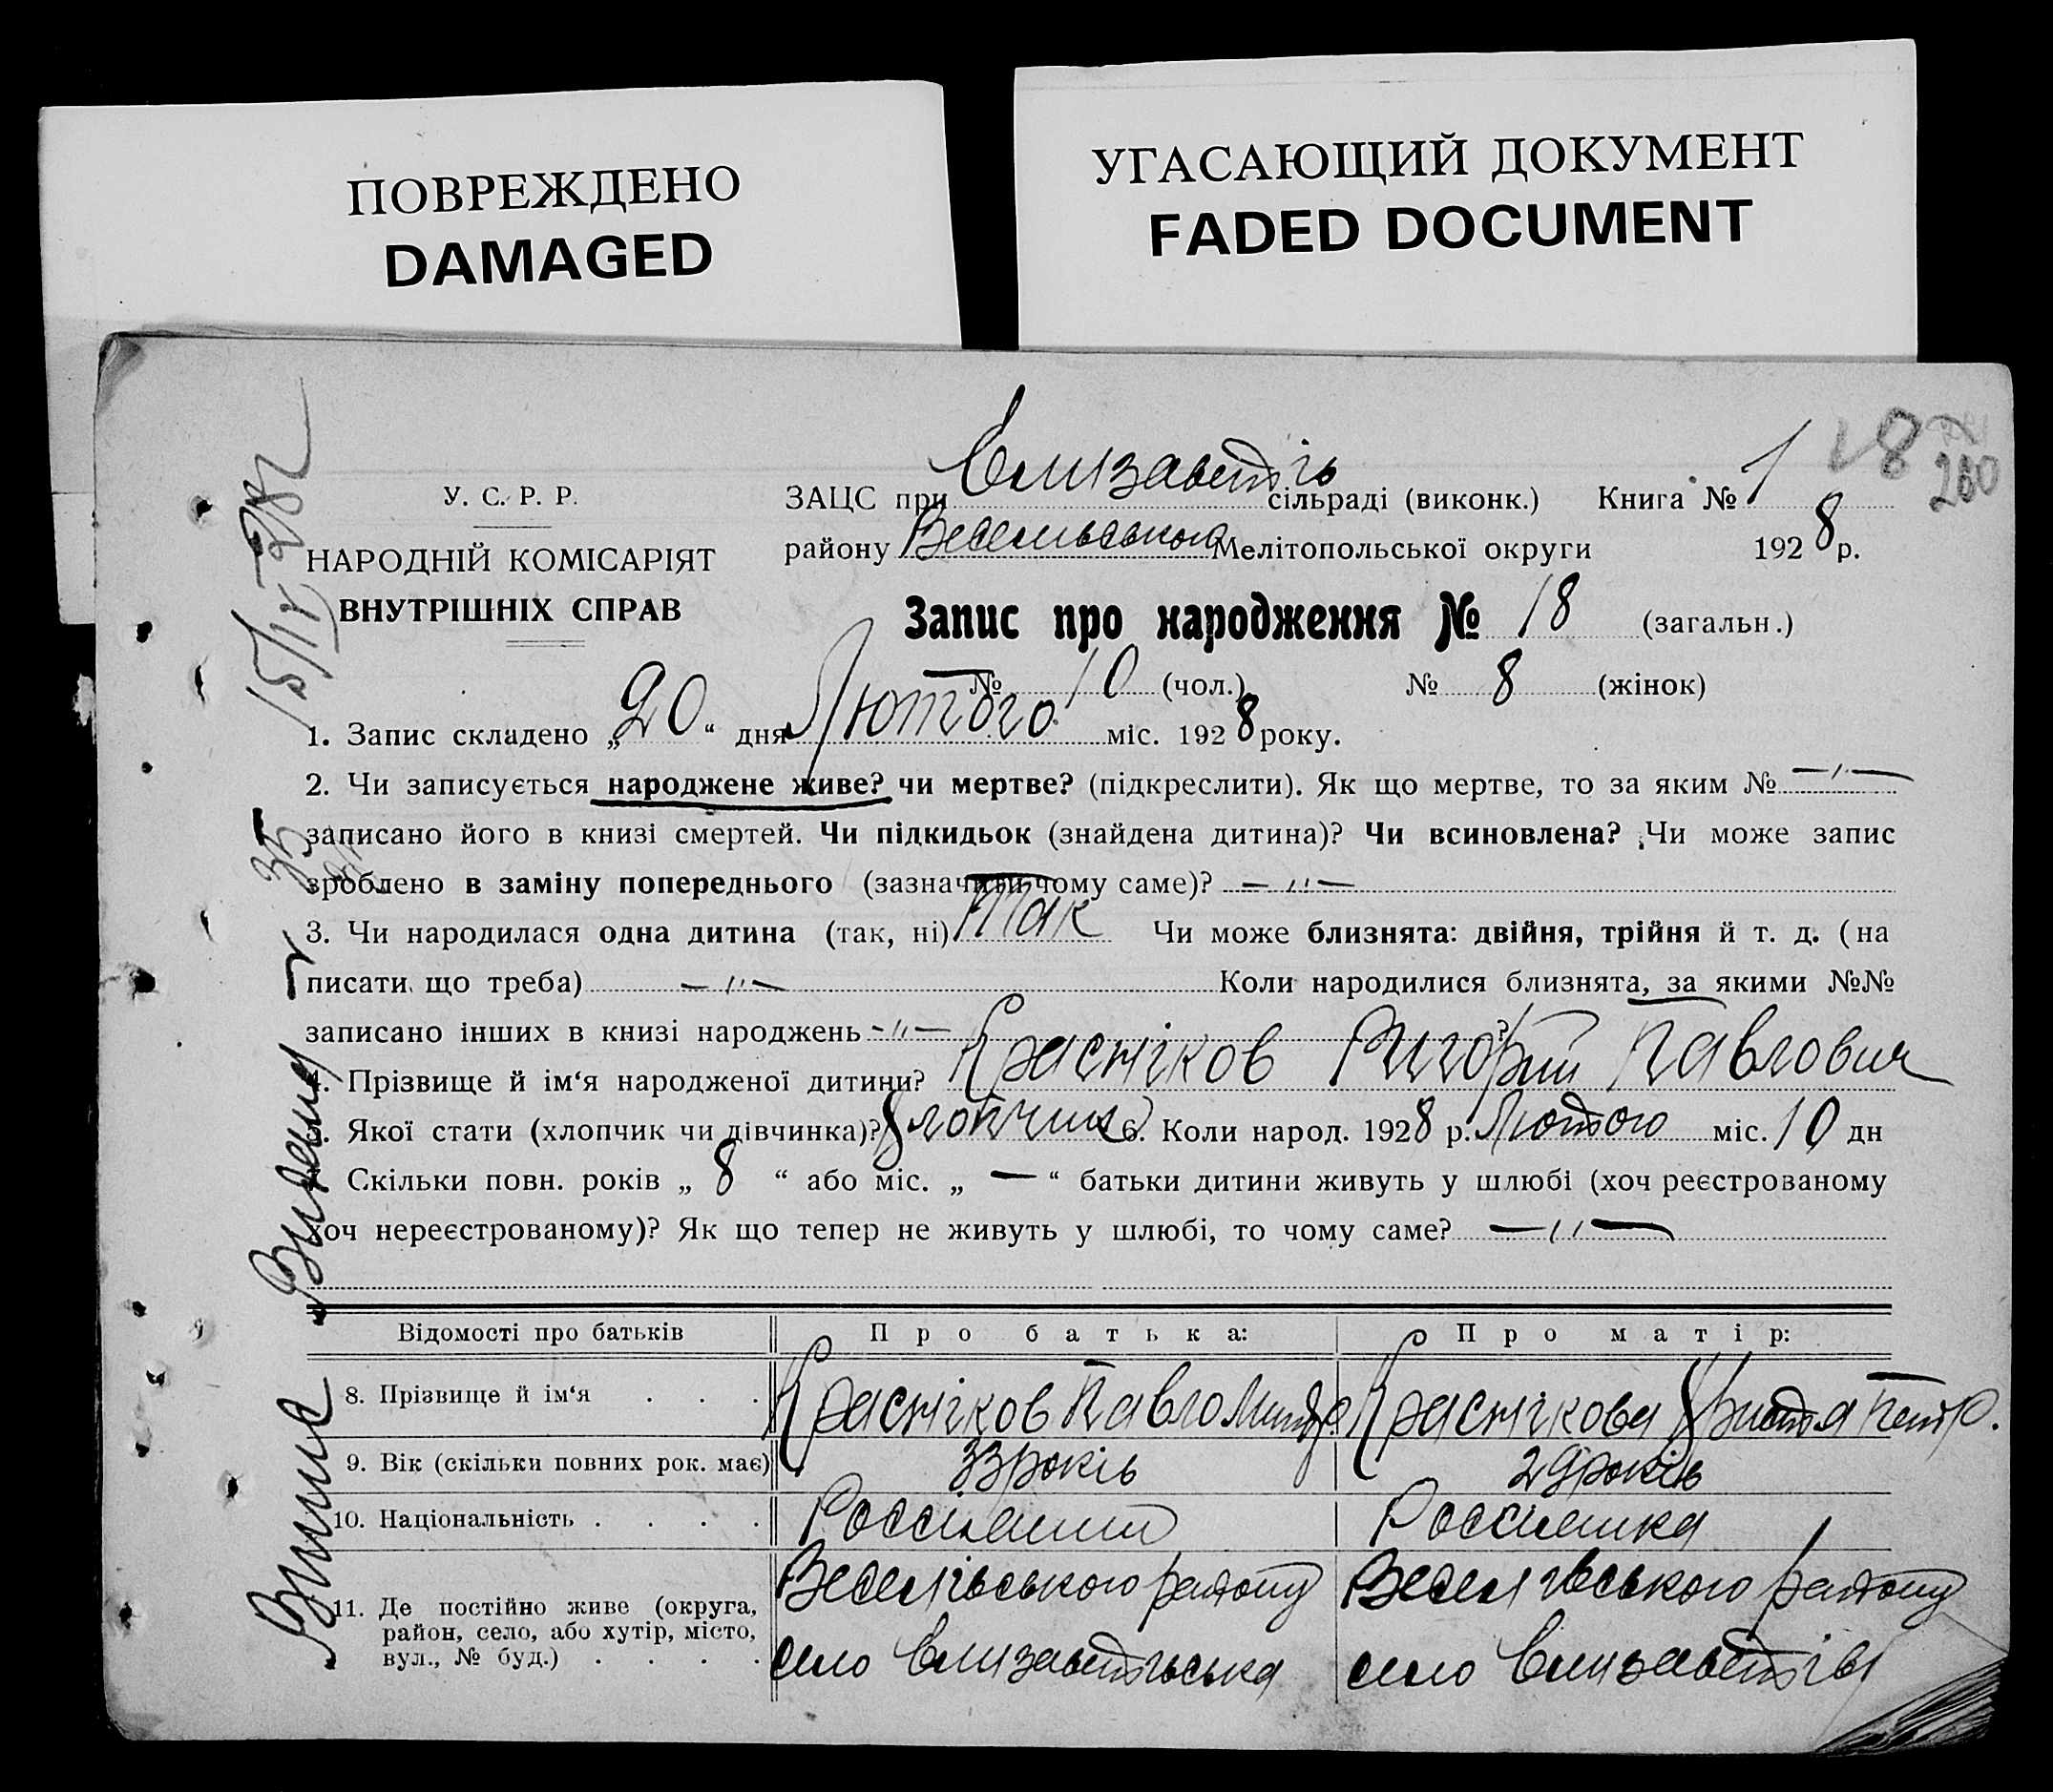 ПОВРЕЖДЕНО
DAMAGED
УГАСАЮЩИЙ ДОКУМЕНТ
FADED DOCUMENT
28
260
У. С. Р. Р.
НАРОДНІЙ КОМІСАРІЯТ
ВНУТРІШНІХ СПРАВ
ЗАЦС при Єлизаветів сільраді (виконк.) Книга № 1
району Веселівського Мелітопольської округи 1928 р.
Запис про народження № 18 (загальн.)
№ 10 (чол.) № 8 (жінок)
1. Запис складено „20“ дня Лютого міс. 1928 року.
2. Чи записується народжене живе? чи мертве? (підкреслити). Як що мертве, то за яким № —"—
записано його в книзі смертей. Чи підкидьок (знайдена дитина)? Чи всиновлена? Чи може запис
зроблено в заміну попереднього (зазначити чому саме)? —"—
3. Чи народилася одна дитина (так, ні) Так Чи може близнята: двійня, трійня й т. д. (на
писати що треба) —"— Коли народилися близнята, за якими №№
записано інших в книзі народжень —"— ?
4. Прізвище й ім‘я народженої дитини? Красніков Григорий Павлович
5. Якої стати (хлопчик чи дівчинка)? Хлопчик 6. Коли народ. 1928 р. Лютого міс. 10 дн
Скільки повн. років „ 8 “ або міс. „ — “ батьки дитини живуть у шлюбі (хоч реєстрованому
хоч нереєстрованому)? Як що тепер не живуть у шлюбі, то чому саме? —"—
Відомості про батьків Про батька: Про матір:
8. Прізвище й ім‘я . . . Красніков Павло Митр. Краснікова Христя Петр.
9. Вік (скільки повних рок. має) 33 років 29 років
10. Національність . . . . Россиянин Россиянка
11. Де постійно живе (округа, район, село, або хутір, місто, вул., № буд.) . . . .
Веселівського району Веселівського району
село Єлизаветівська село Єлизаветівці
15/IV-28